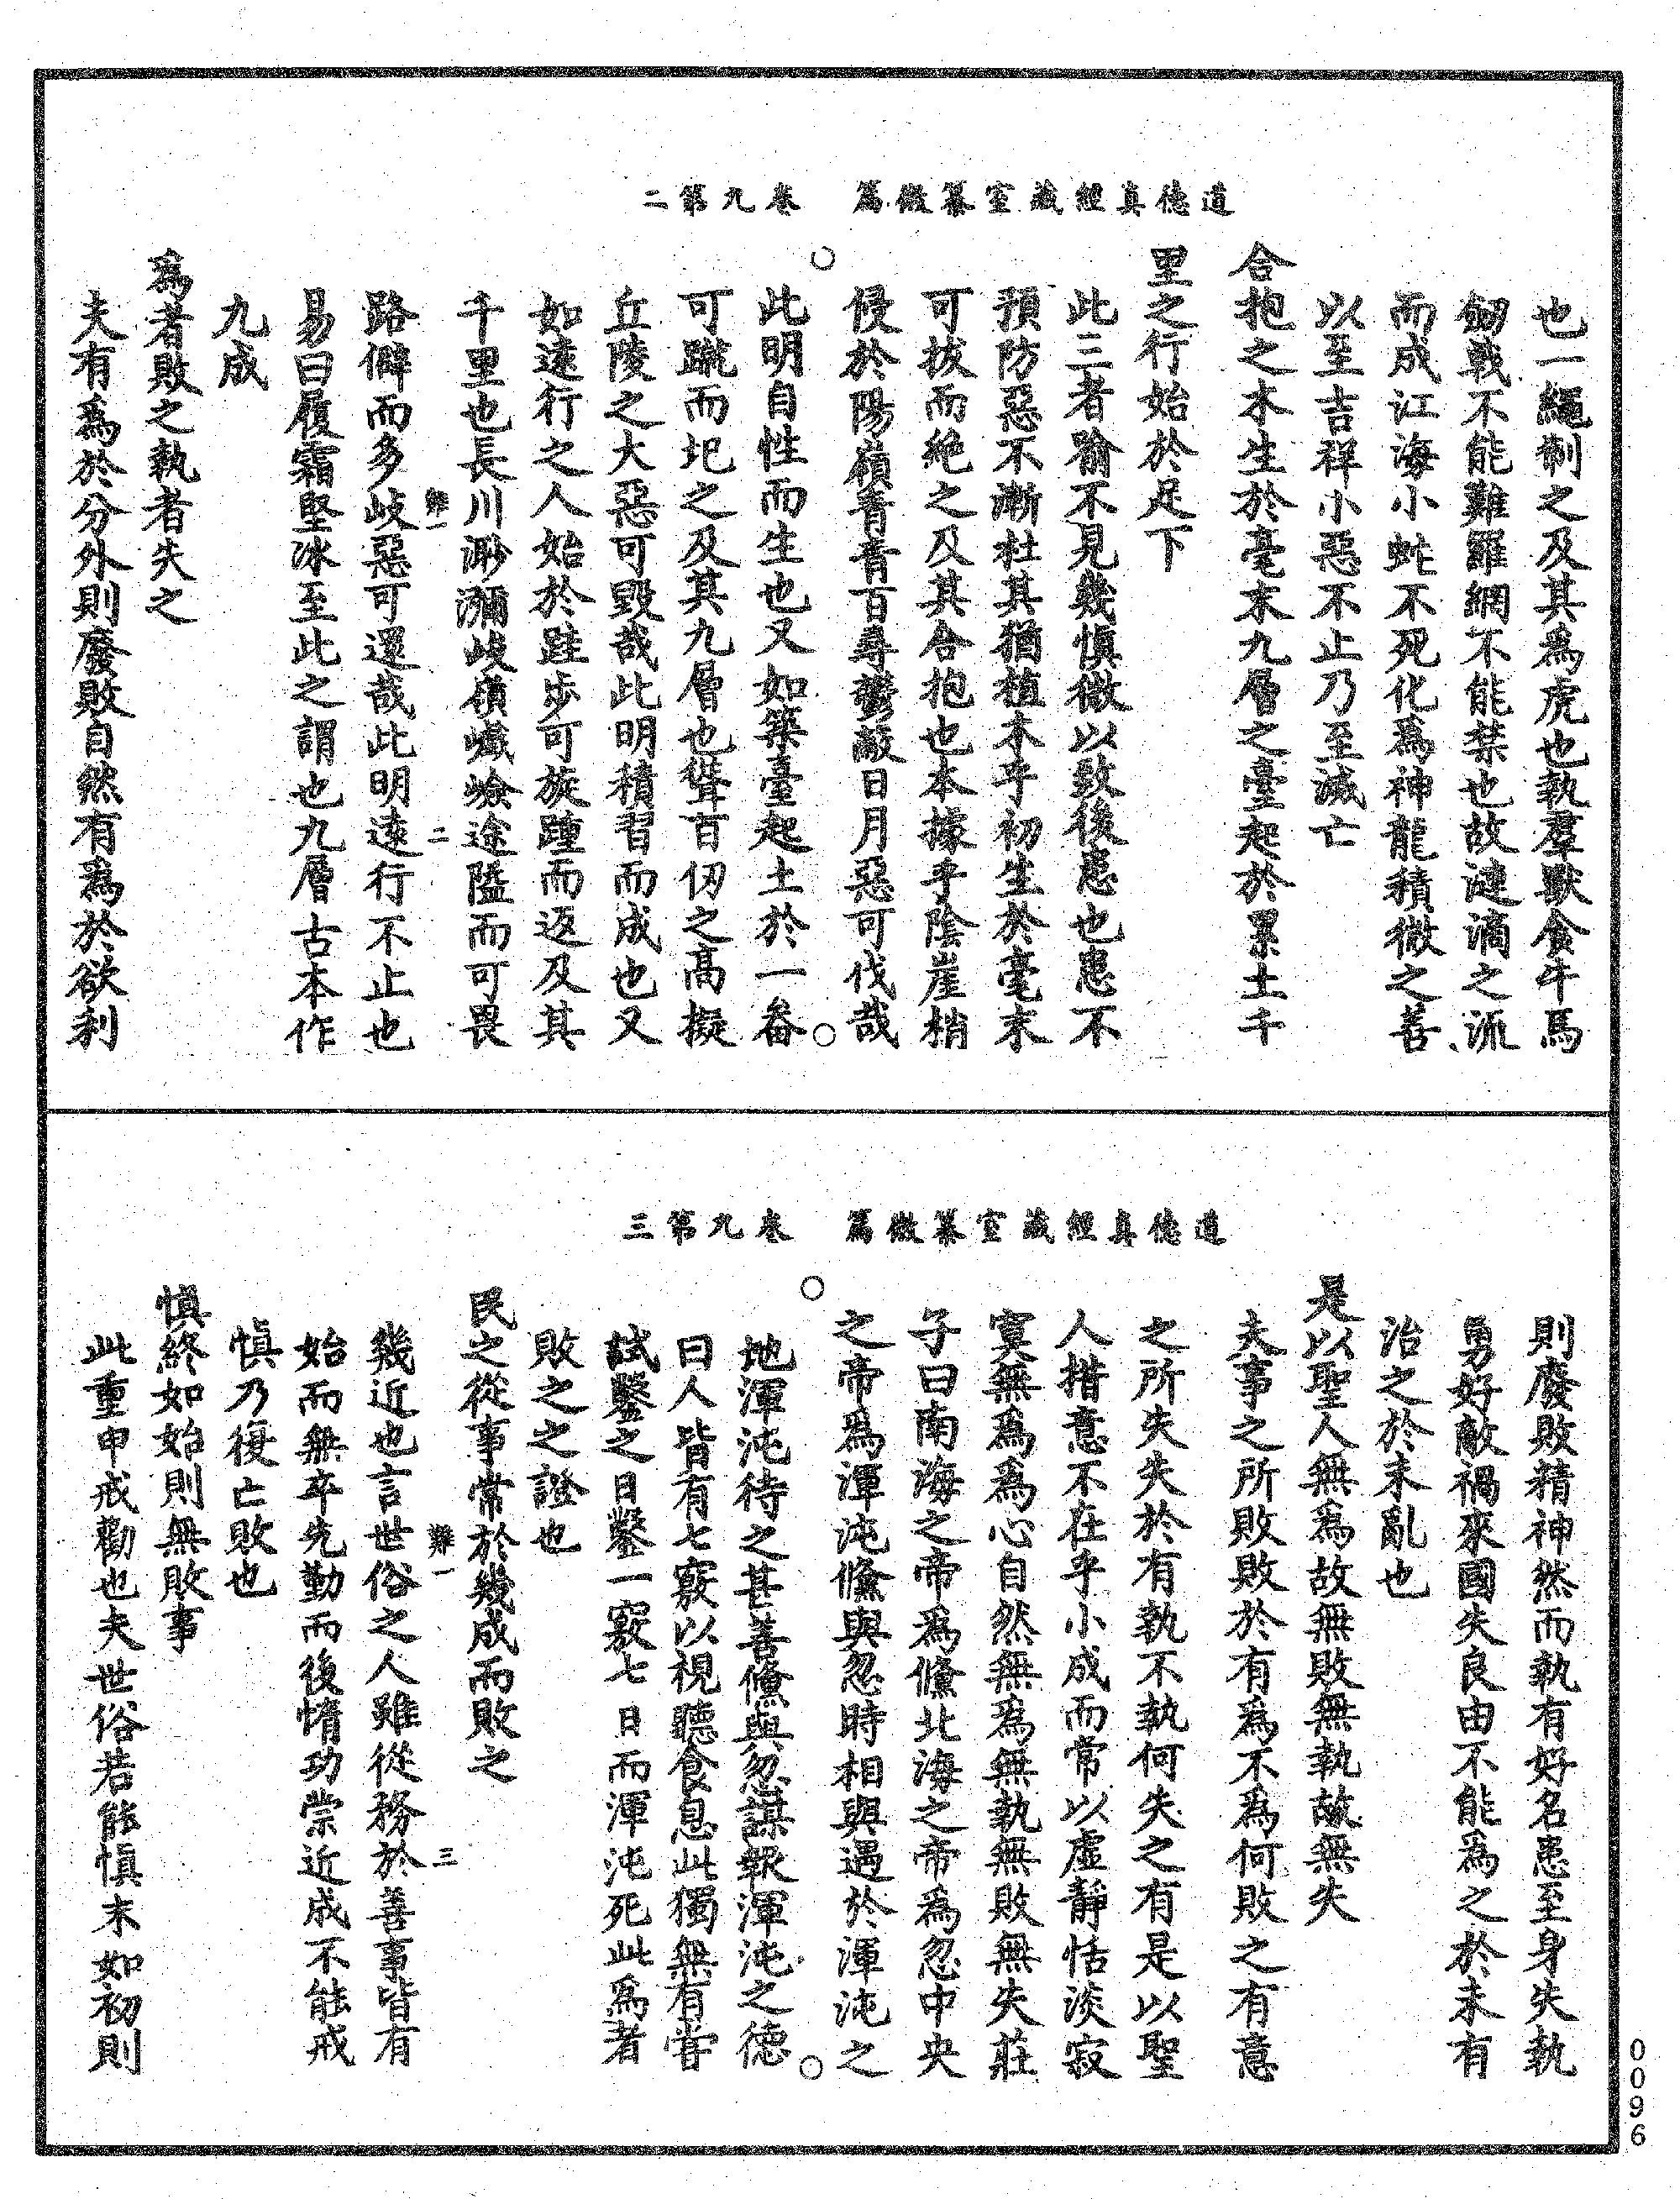 道德真經藏室纂微篇　卷九第二
也一繩制之及其為虎也執羣獸食牛馬
劒戟不能難羅網不能禁也故漣滴之流
而成江海小虵不死化為神龍積微之善
以至吉祥小惡不止乃至滅亡
合抱之木生於毫末九層之臺起於累土千
里之行始於足下
此三者喻不見幾慎微以致後患也患不
預防惡不漸杜其猶植木乎初生於毫末
可拔而絶之及其合抱也本據乎陰崖梢
侵於陽嶺青青百尋鬱蔽日月惡可伐哉
此明自性而生也又如築臺起土於一畚
可蹴而圮之及其九層也聳百仞之高擬
丘陵之大惡可毀哉此明積習而成也又
如遠行之人始於跬步可旋踵而返及其
千里也長川渺瀰岐嶺巇嶮途隘而可畏
路僻而多岐惡可還哉此明遠行不止也
難一　二
易曰履霜堅冰至此之謂也九層古本作
九成
為者敗之執者失之
夫有為於分外則廢敗自然有為於欲利
道德真經藏室纂微篇　卷九第三
則廢敗精神然而執有好名患至身失執
勇好敵禍來國失良由不能為之於未有
治之於未亂也
是以聖人無為故無敗無執故無失
夫事之所敗敗於有為不為何敗之有意
之所失失於有執不執何失之有是以聖
人措意不在乎小成而常以虛靜恬淡寂
寞無為為心自然無為無執無敗無失莊
子曰南海之帝為儵北海之帝為忽中央
之帝為渾沌儵與忽時相與遇於渾沌之
地渾沌待之甚善儵與忽謀報渾沌之德
曰人皆有七竅以視聽食息此獨無有嘗
試鑿之日鑿一竅七日而渾沌死此為者
敗之之證也
民之從事常於幾成而敗之
難一　三
幾近也言世俗之人雖從務於善事皆有
始而無卒先勤而後惰功崇近成不能戒
慎乃復亡敗也
慎終如始則無敗事
此重申戒勸也夫世俗若能慎末如初則
0096